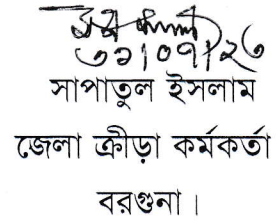 ৩১|০৭|২৩
সাপাতুল ইসলাম
জেলা ক্রীড়া কর্মকর্তা
বরগুনা।